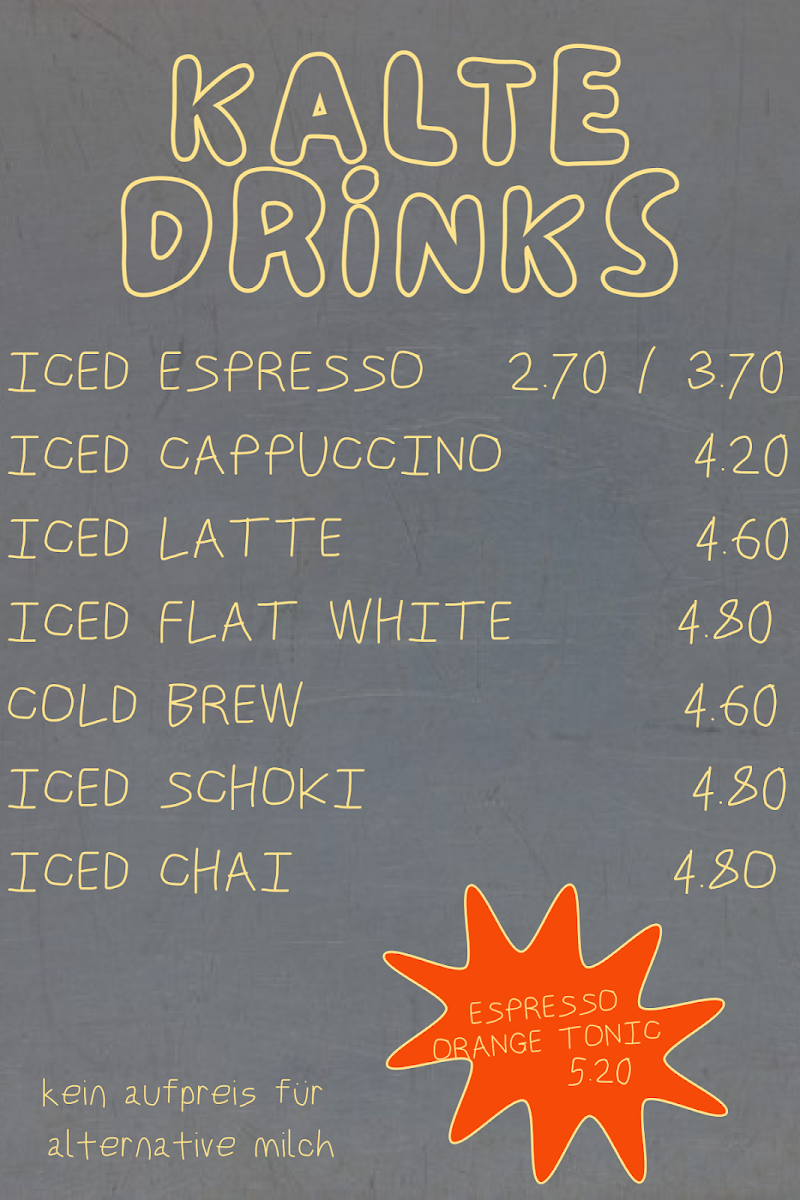 KALTE
DRiNKS
ICED ESPRESSO 2.70 / 3.70
ICED CAPPUCCINO 4.20
ICED LATTE 4.60
ICED FLAT WHITE 4.80
COLD BREW 4.60
ICED SCHOKI 4.80
ICED CHAI 4.80
ESPRESSO
ORANGE TONIC
5.20
kein aufpreis für
alternative milch